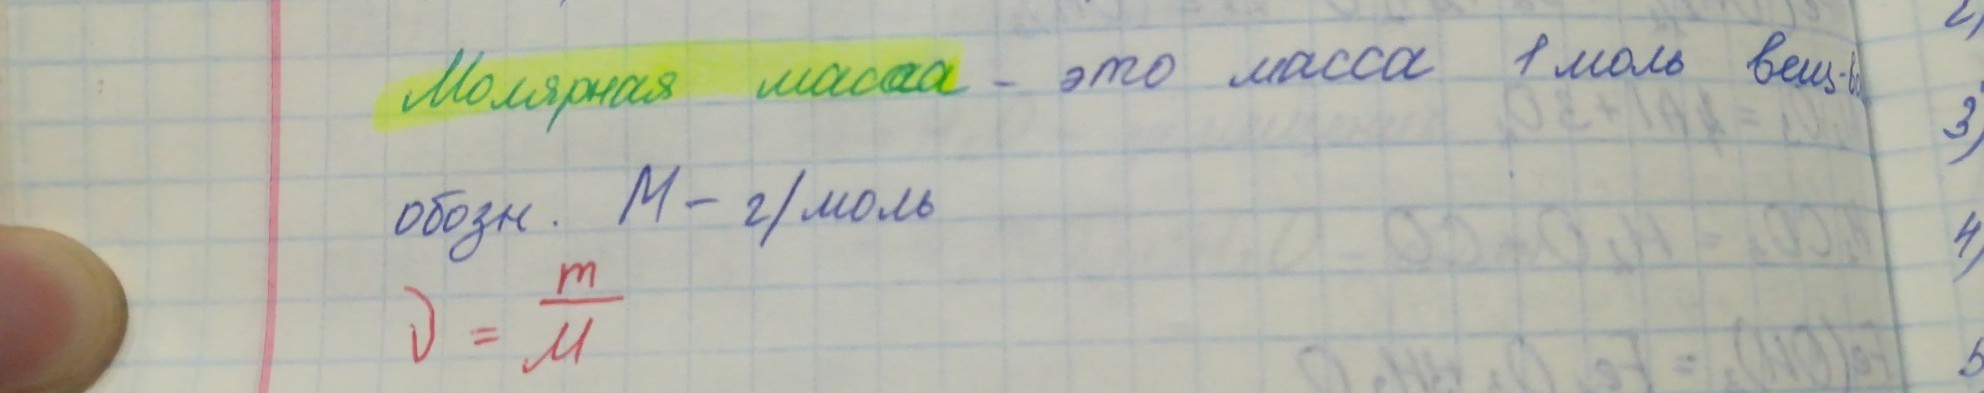 Молярная масса - это масса 1 моль вещ-ва
обозн. M - г/моль
ν = m/M
2)
3)
4)
5